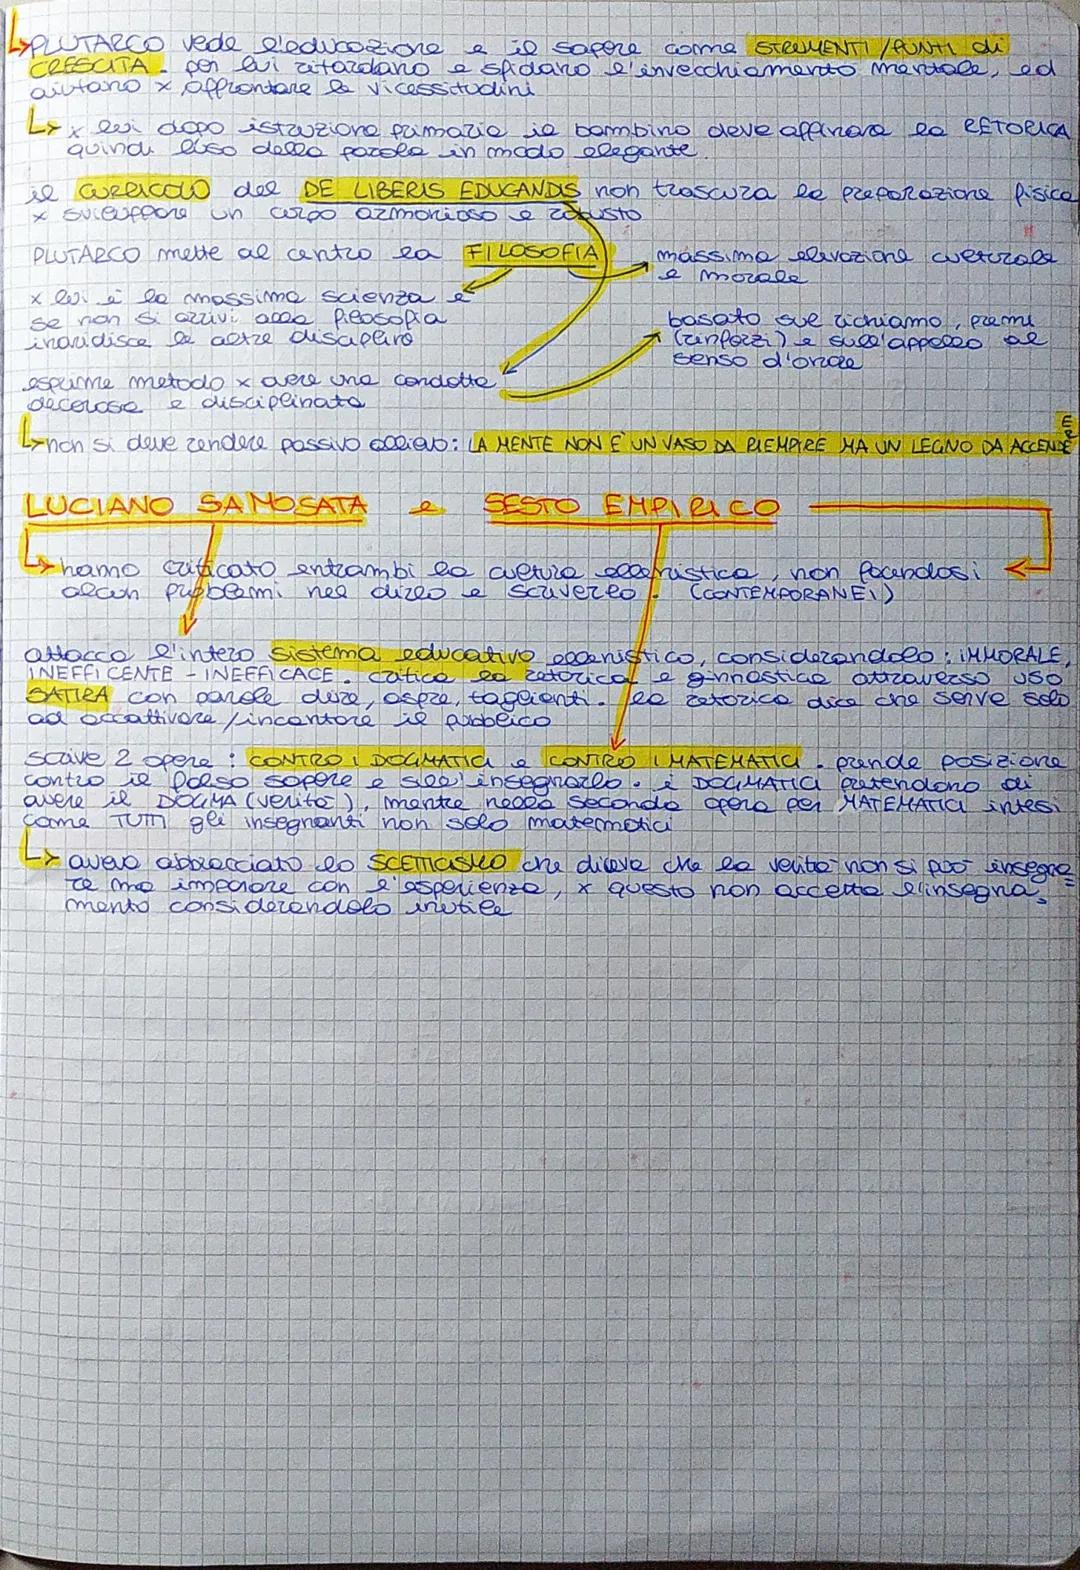 PLUTARCO vede l'educazione e il sapere come STRUMENTI / PUNTI di
CRESCITA. per lui ritardano e sfidano l'invecchiamento mentale, ed
aiutano x affrontare le vicessitudini
x lui dopo istruzione primaria il bambino deve affinare la RETORICA
quindi l'uso della parola in modo elegante.
il CURRICOLO del DE LIBERIS EDUCANDIS non trascura la preparazione fisica
x sviluppare un corpo armonioso e robusto
PLUTARCO mette al centro la FILOSOFIA
massima elevazione culturale
e morale
x lui è la massima scienza e
se non si arrivi alla filosofia
inaridisce le altre discipline
basato sul richiamo, premi
(rinforzi) e sull'appello al
senso d'onore
esprime metodo x avere una condotta
decorosa e disciplinata
non si deve rendere passivo allievo: LA MENTE NON E' UN VASO DA RIEMPIRE MA UN LEGNO DA ACCENDERE
LUCIANO SAMOSATA e SESTO EMPIRICO
hanno criticato entrambi la cultura ellenistica, non facendosi
alcun problema nel dirlo e scriverlo. (CONTEMPORANEI)
attacca l'intero sistema educativo ellenistico, considerandolo: IMMORALE,
INEFFICENTE - INEFFICACE. critica la retorica e ginnastica attraverso uso
SATIRA con parole dure, aspre, taglienti. la retorica dice che serve solo
ad accattivare / incantare il pubblico
scrive 2 opere: CONTRO I DOGMATICI e CONTRO I MATEMATICI. prende posizione
contro il falso sapere e sull'insegnarlo. i DOGMATICI pretendono di
avere il DOGMA (verità), mentre nella seconda opera per MATEMATICI intesi
come TUTTI gli insegnanti non solo matematici
aveva abbracciato lo SCETTICISMO che diceva che la verità non si può insegna=
re ma imparare con l'esperienza, x questo non accetta l'insegna=
mento considerandolo inutile